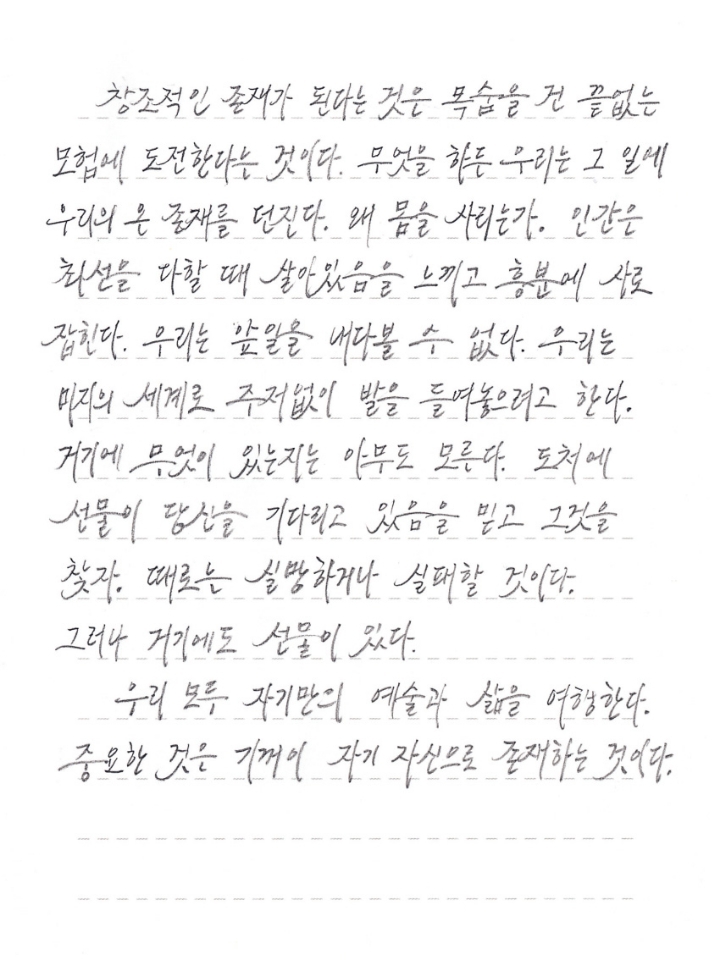 창조적인 존재가 된다는 것은 목숨을 건 끝없는
모험에 도전한다는 것이다. 무엇을 하든 우리는 그 일에
우리의 온 존재를 던진다. 왜 몸을 사리는가. 인간은
최선을 다할 때 살아있음을 느끼고 흥분에 사로
잡힌다. 우리는 앞일을 내다볼 수 없다. 우리는
미지의 세계로 주저없이 발을 들여놓으려고 한다.
거기에 무엇이 있는지는 아무도 모른다. 도처에
선물이 당신을 기다리고 있음을 믿고 그것을
찾자. 때로는 실망하거나 실패할 것이다.
그러나 거기에도 선물이 있다.
우리 모두 자기만의 예술과 삶을 여행한다.
중요한 것은 기꺼이 자기 자신으로 존재하는 것이다.